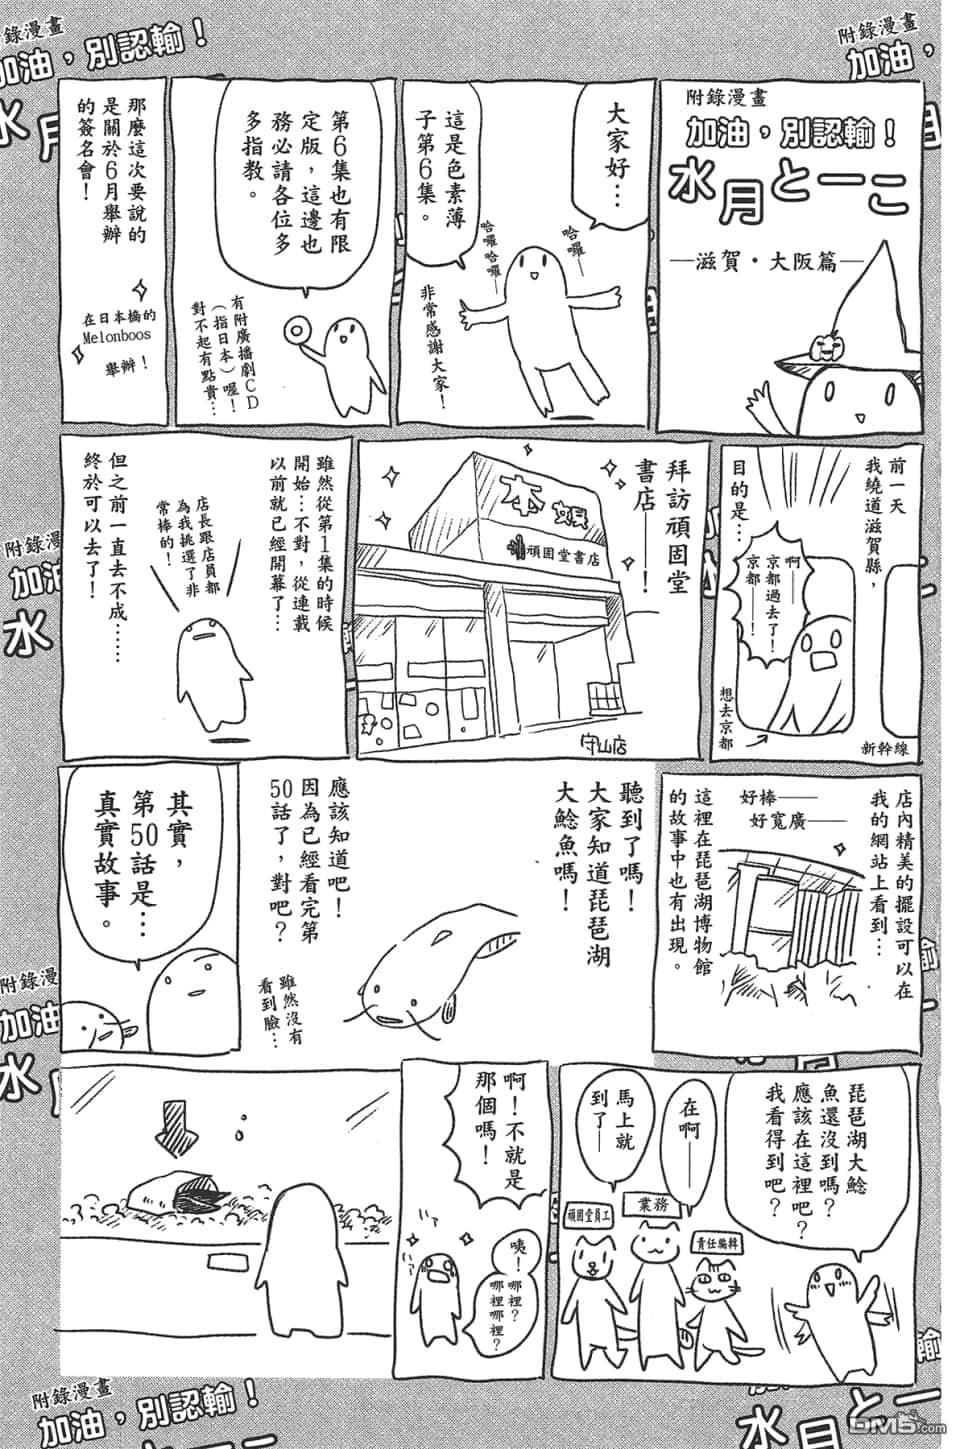 附錄漫畫
加油，別認輸！
水月
附錄漫畫
加油，
附錄漫畫
加油，別認輸！
水月と一こ
—滋賀・大阪篇—
大家好…
哈囉——
哈囉哈囉——
這是色素薄
子第6集。
非常感謝大家！
第6集也有限
定版，這邊也
務必請各位多
多指教。
有附廣播劇CD
（指日本）喔！
對不起有點貴…
那麼這次要說的
是關於6月舉辦
的簽名會！
在日本橋的
Melonboos
舉辦！
前一天
我繞道滋賀縣，
目的是…
啊——
京都過去了！
京都——！
想去京都
新幹線
拜訪頑固堂
書店——！
本
頑固堂書店
守山店
雖然從第1集的時候
開始…不對，從連載
以前就已經開幕了…
店長跟店員都
為我挑選了非
常棒的！
但之前一直去不成……
終於可以去了！
店內精美的擺設可以在
我的網站上看到…
好棒——
好寬廣——
這裡在琵琶湖博物館
的故事中也有出現。
聽到了嗎！
大家知道琵琶湖
大鯰魚嗎！
應該知道吧！
因為已經看完第
50話了，對吧？
雖然沒有
看到臉…
其實，
第50話是…
真實故事。
琵琶湖大鯰
魚還沒到嗎？
應該在這裡吧？
我看得到吧？
在啊——
馬上就
到了——
責任編輯
業務
頑固堂員工
啊！不就是
那個嗎！
咦！
哪裡？
哪裡哪裡？
附錄漫畫
加油
水
附錄漫畫
加油
水
附錄漫畫
加油，別認輸！
水月と一